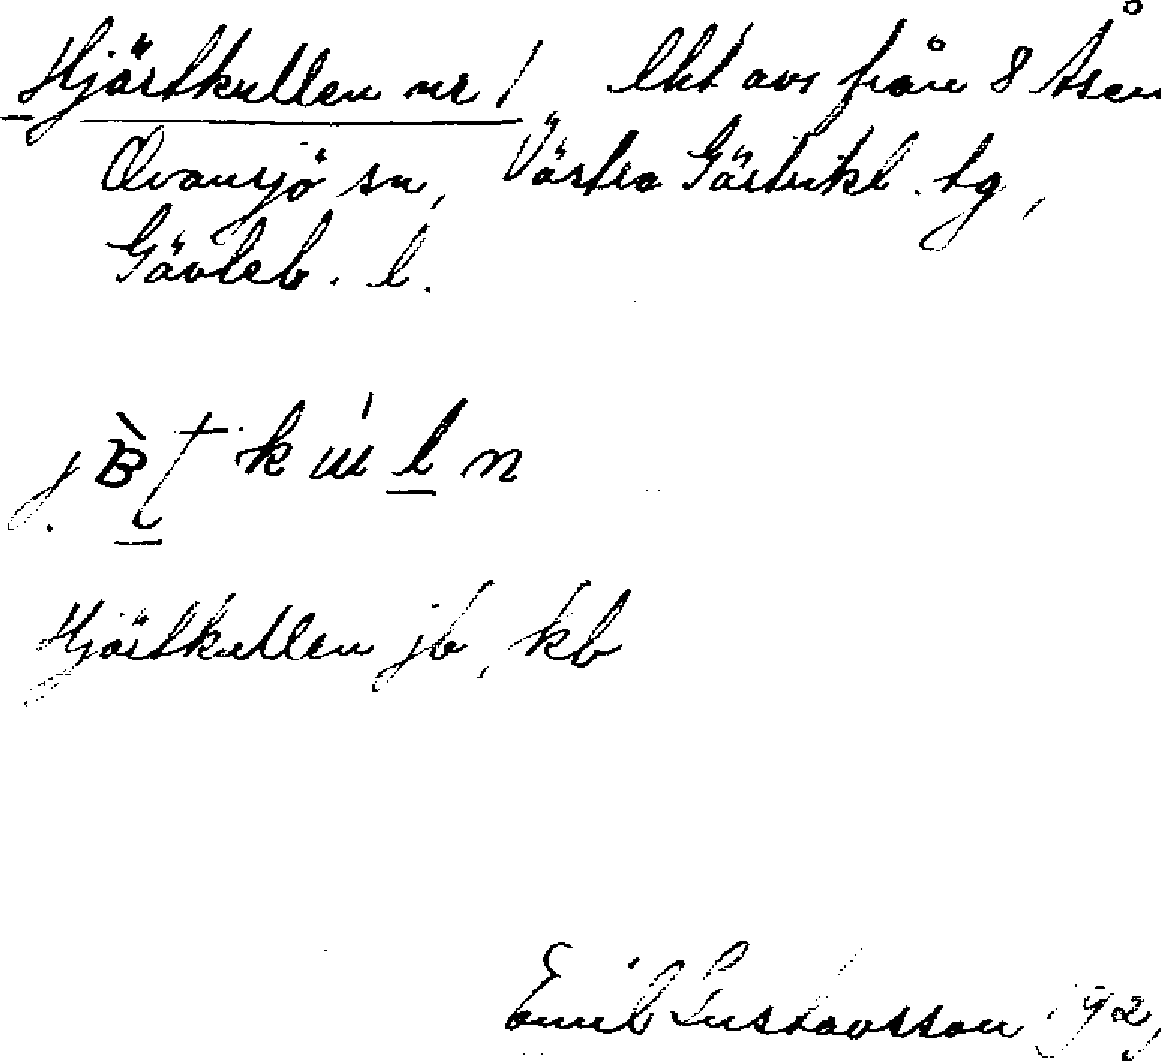 Hjärtkullen nr 1 lht avs från 8 Åsen
Ovansjö sn, Västra Gästrikl. tg,
Gävleb. l.
Hjärtkullen jb, kb
Emil Gustavsson 192